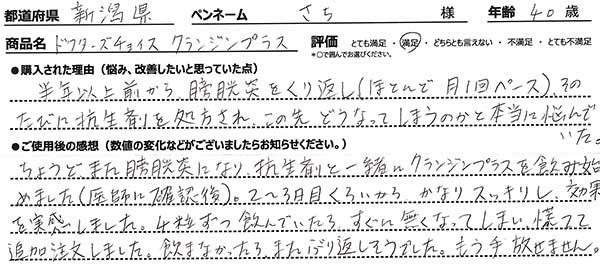 都道府県 新潟県 ペンネーム さち 様 年齢 40 歳
商品名 ドクターズチョイス クランジンプラス 評価 とても満足 ・ 満足 ・ どちらとも言えない ・ 不満足 ・ とても不満足
*○で囲んでお選びください。
●購入された理由（悩み、改善したいと思っていた点）
半年以上前から、膀胱炎をくり返し(ほとんど月1回ペース)、その
たびに抗生剤を処方され、この先どうなってしまうのかと本当に悩んで
いた。
●ご使用後の感想（数値の変化などがございましたらお知らせください。）
ちょうどまた膀胱炎になり、抗生剤と一緒にクランジンプラスを飲み始
めました(医師に確認後)。2〜3日目くらいから かなりスッキリし、効果
を実感しました。4粒ずつ飲んでいたら、すぐに無くなってしまい、慌てて
追加注文しました。飲まなかったら、またぶり返しそうでした。もう手放せません。